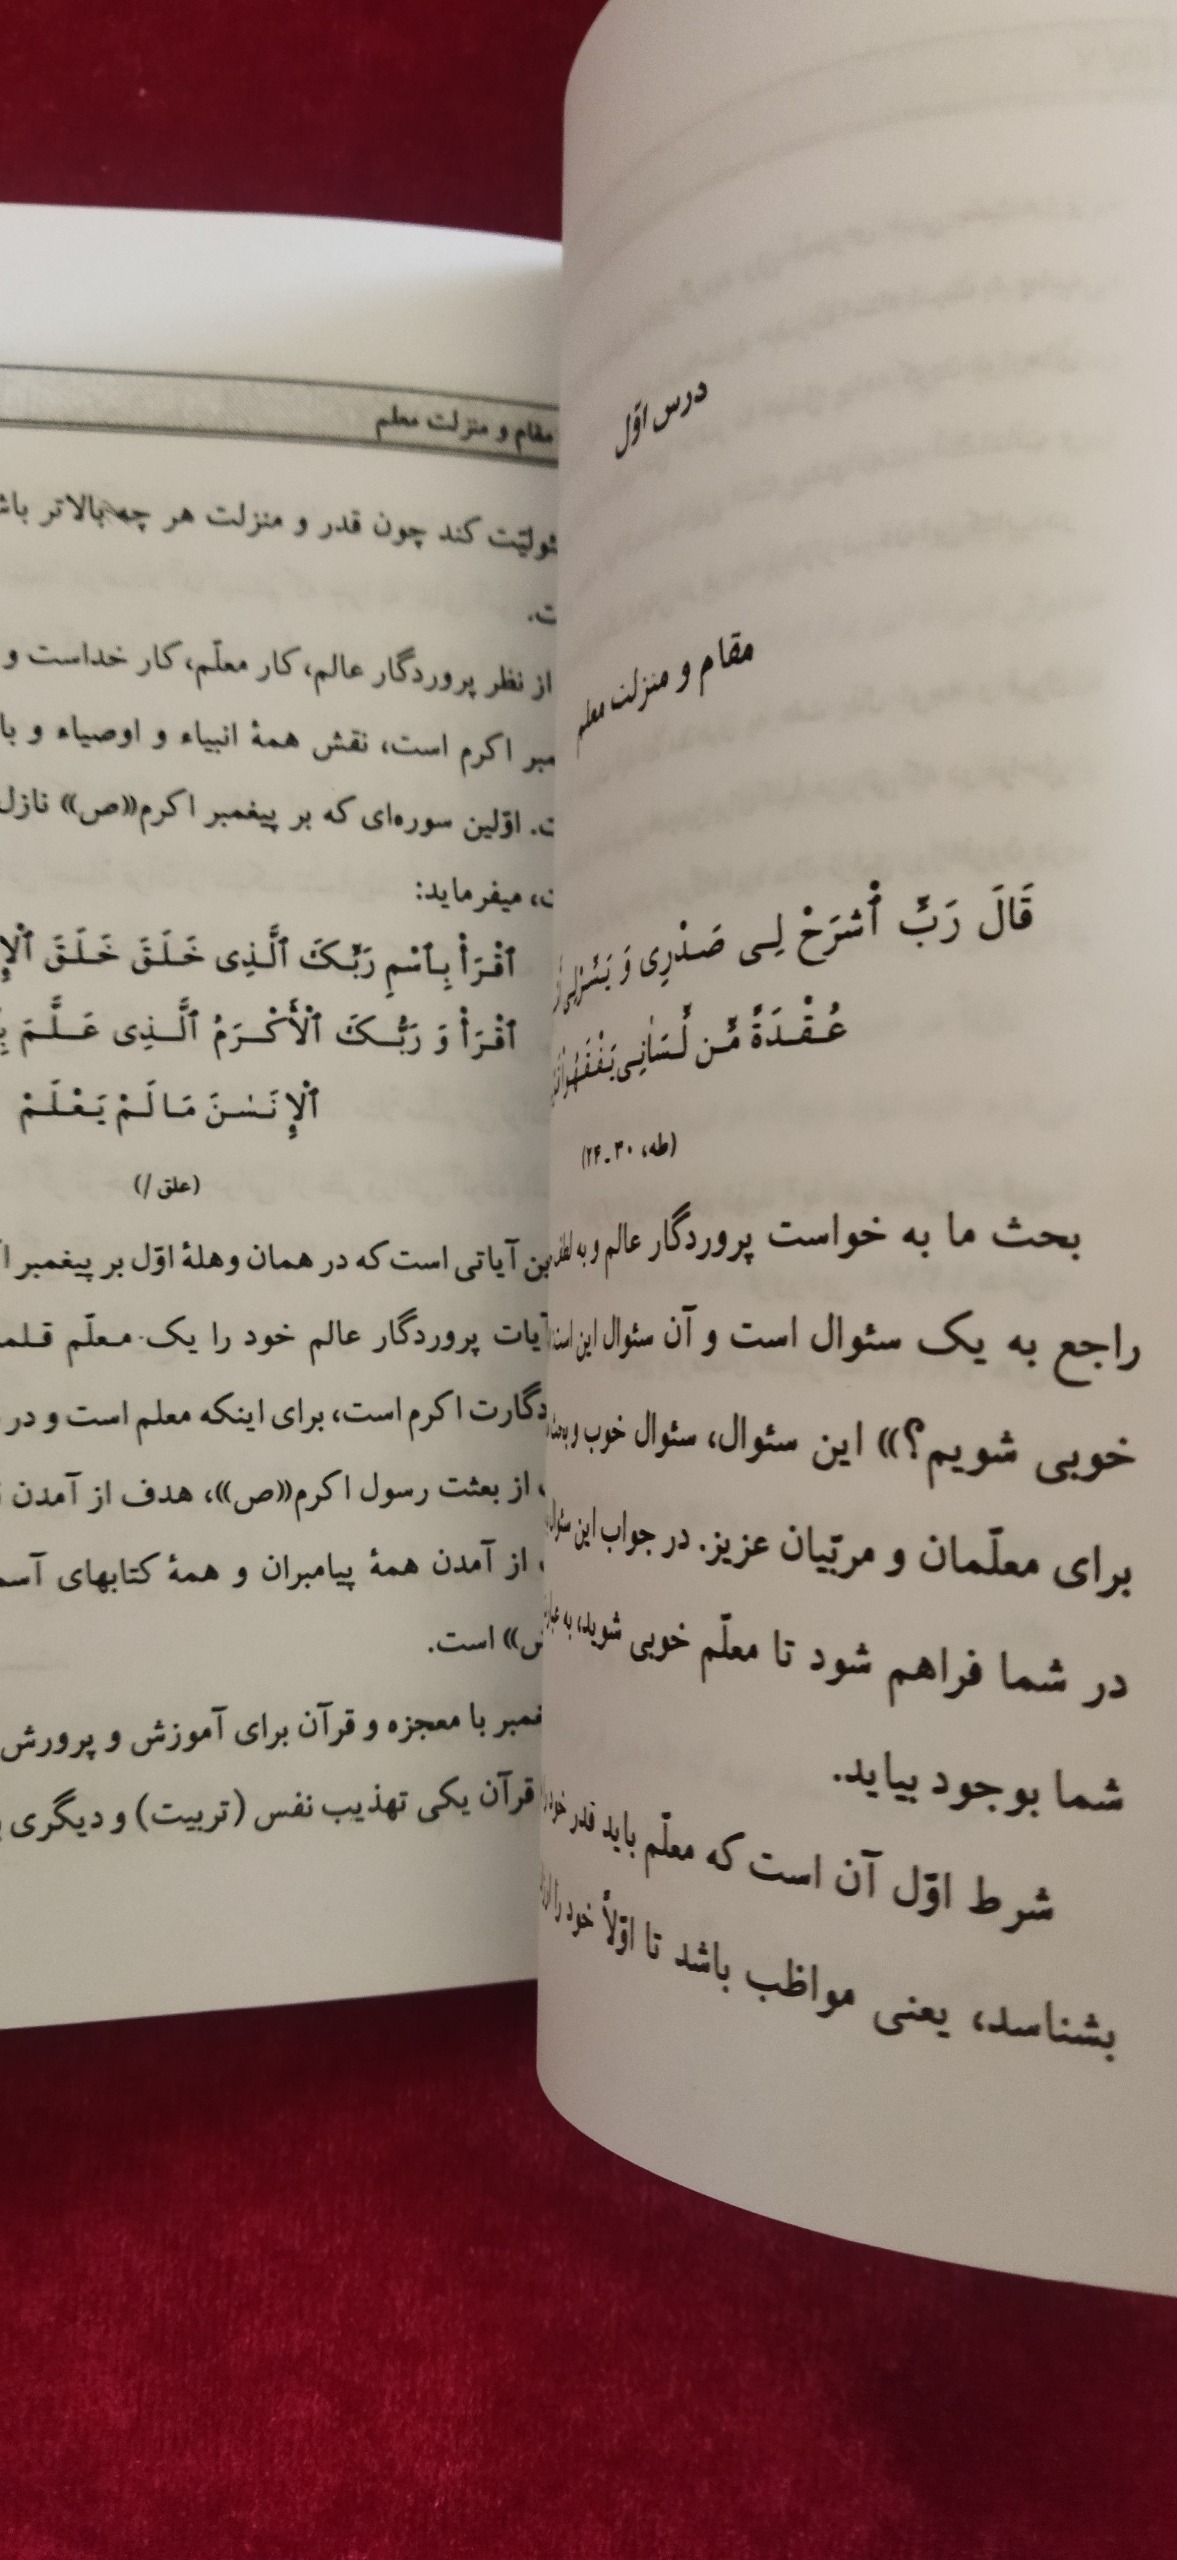 درس اوّل
مقام و منزلت معلم
قَالَ رَبِّ ٱشْرَحْ لِی صَدْرِی وَ یَسِّرْلِی
عُقْدَةً مِّن لِّسَانِی یَفْقَهُوا
(طه، ۳۰ـ۲۴)
بحث ما به خواست پروردگار عالم و به لطف
راجع به یک سئوال است و آن سئوال این است
خوبی شویم؟» این سئوال، سئوال خوب و بحث
برای معلّمان و مربّیان عزیز. در جواب این سئوال
در شما فراهم شود تا معلّم خوبی شوید، به
شما بوجود بیاید.
شرط اوّل آن است که معلّم باید قدر خود را
بشناسد، یعنی مواظب باشد تا اوّلاً خود را
مقام و منزلت معلم
کند چون قدر و منزلت هر چه بالاتر
از نظر پروردگار عالم، کار معلّم، کار خداست و
اکرم است، نقش همهٔ انبیاء و اوصیاء و
اوّلین سوره‌ای که بر پیغمبر اکرم«ص» نازل
میفرماید:
ٱقْرَأْ بِٱسْمِ رَبِّکَ ٱلَّذِی خَلَقَ خَلَقَ
ٱقْرَأْ وَ رَبُّکَ ٱلْأَکْرَمُ ٱلَّذِی عَلَّمَ
ٱلْإِنَسٰنَ مَا لَمْ یَعْلَمْ
(علق /)
آیاتی است که در همان وهلهٔ اوّل بر پیغمبر
آیات پروردگار عالم خود را یک معلّم
اکرم است، برای اینکه معلم است و در
از بعثت رسول اکرم«ص»، هدف از آمدن
از آمدن همهٔ پیامبران و همهٔ کتابهای
است.
با معجزه و قرآن برای آموزش و پرورش
قرآن یکی تهذیب نفس (تربیت) و دیگری